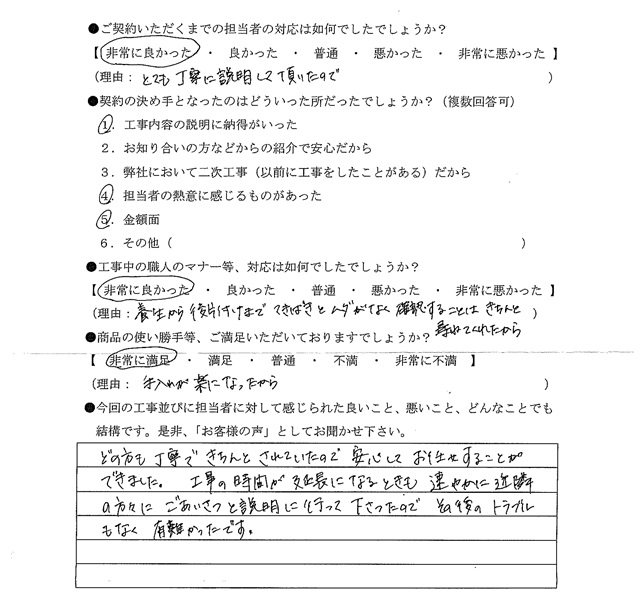 ●ご契約いただくまでの担当者の対応は如何でしたでしょうか？
【 非常に良かった ・ 良かった ・ 普通 ・ 悪かった ・ 非常に悪かった 】
（理由：とても丁寧に説明して頂いたので ）
●契約の決め手となったのはどういった所だったでしょうか？（複数回答可）
１．工事内容の説明に納得がいった
２．お知り合いの方などからの紹介で安心だから
３．弊社において二次工事（以前に工事をしたことがある）だから
４．担当者の熱意に感じるものがあった
５．金額面
６．その他（ ）
●工事中の職人のマナー等、対応は如何でしたでしょうか？
【 非常に良かった ・ 良かった ・ 普通 ・ 悪かった ・ 非常に悪かった 】
（理由：養生から後片付けまで てきぱきと ムダがなく 確認することは きちんと ）
尋ねてくれたから
●商品の使い勝手等、ご満足いただいておりますでしょうか？
【 非常に満足 ・ 満足 ・ 普通 ・ 不満 ・ 非常に不満 】
（理由： 手入れが楽になったから ）
●今回の工事並びに担当者に対して感じられた良いこと、悪いこと、どんなことでも
結構です。是非、「お客様の声」としてお聞かせ下さい。
どの方も丁寧できちんとされていたので 安心して お任せすることが
できました。 工事の時間が延長になるときも 速やかに近隣
の方々に ごあいさつと説明に行って下さったので その後の トラブル
もなく 有難かったです。